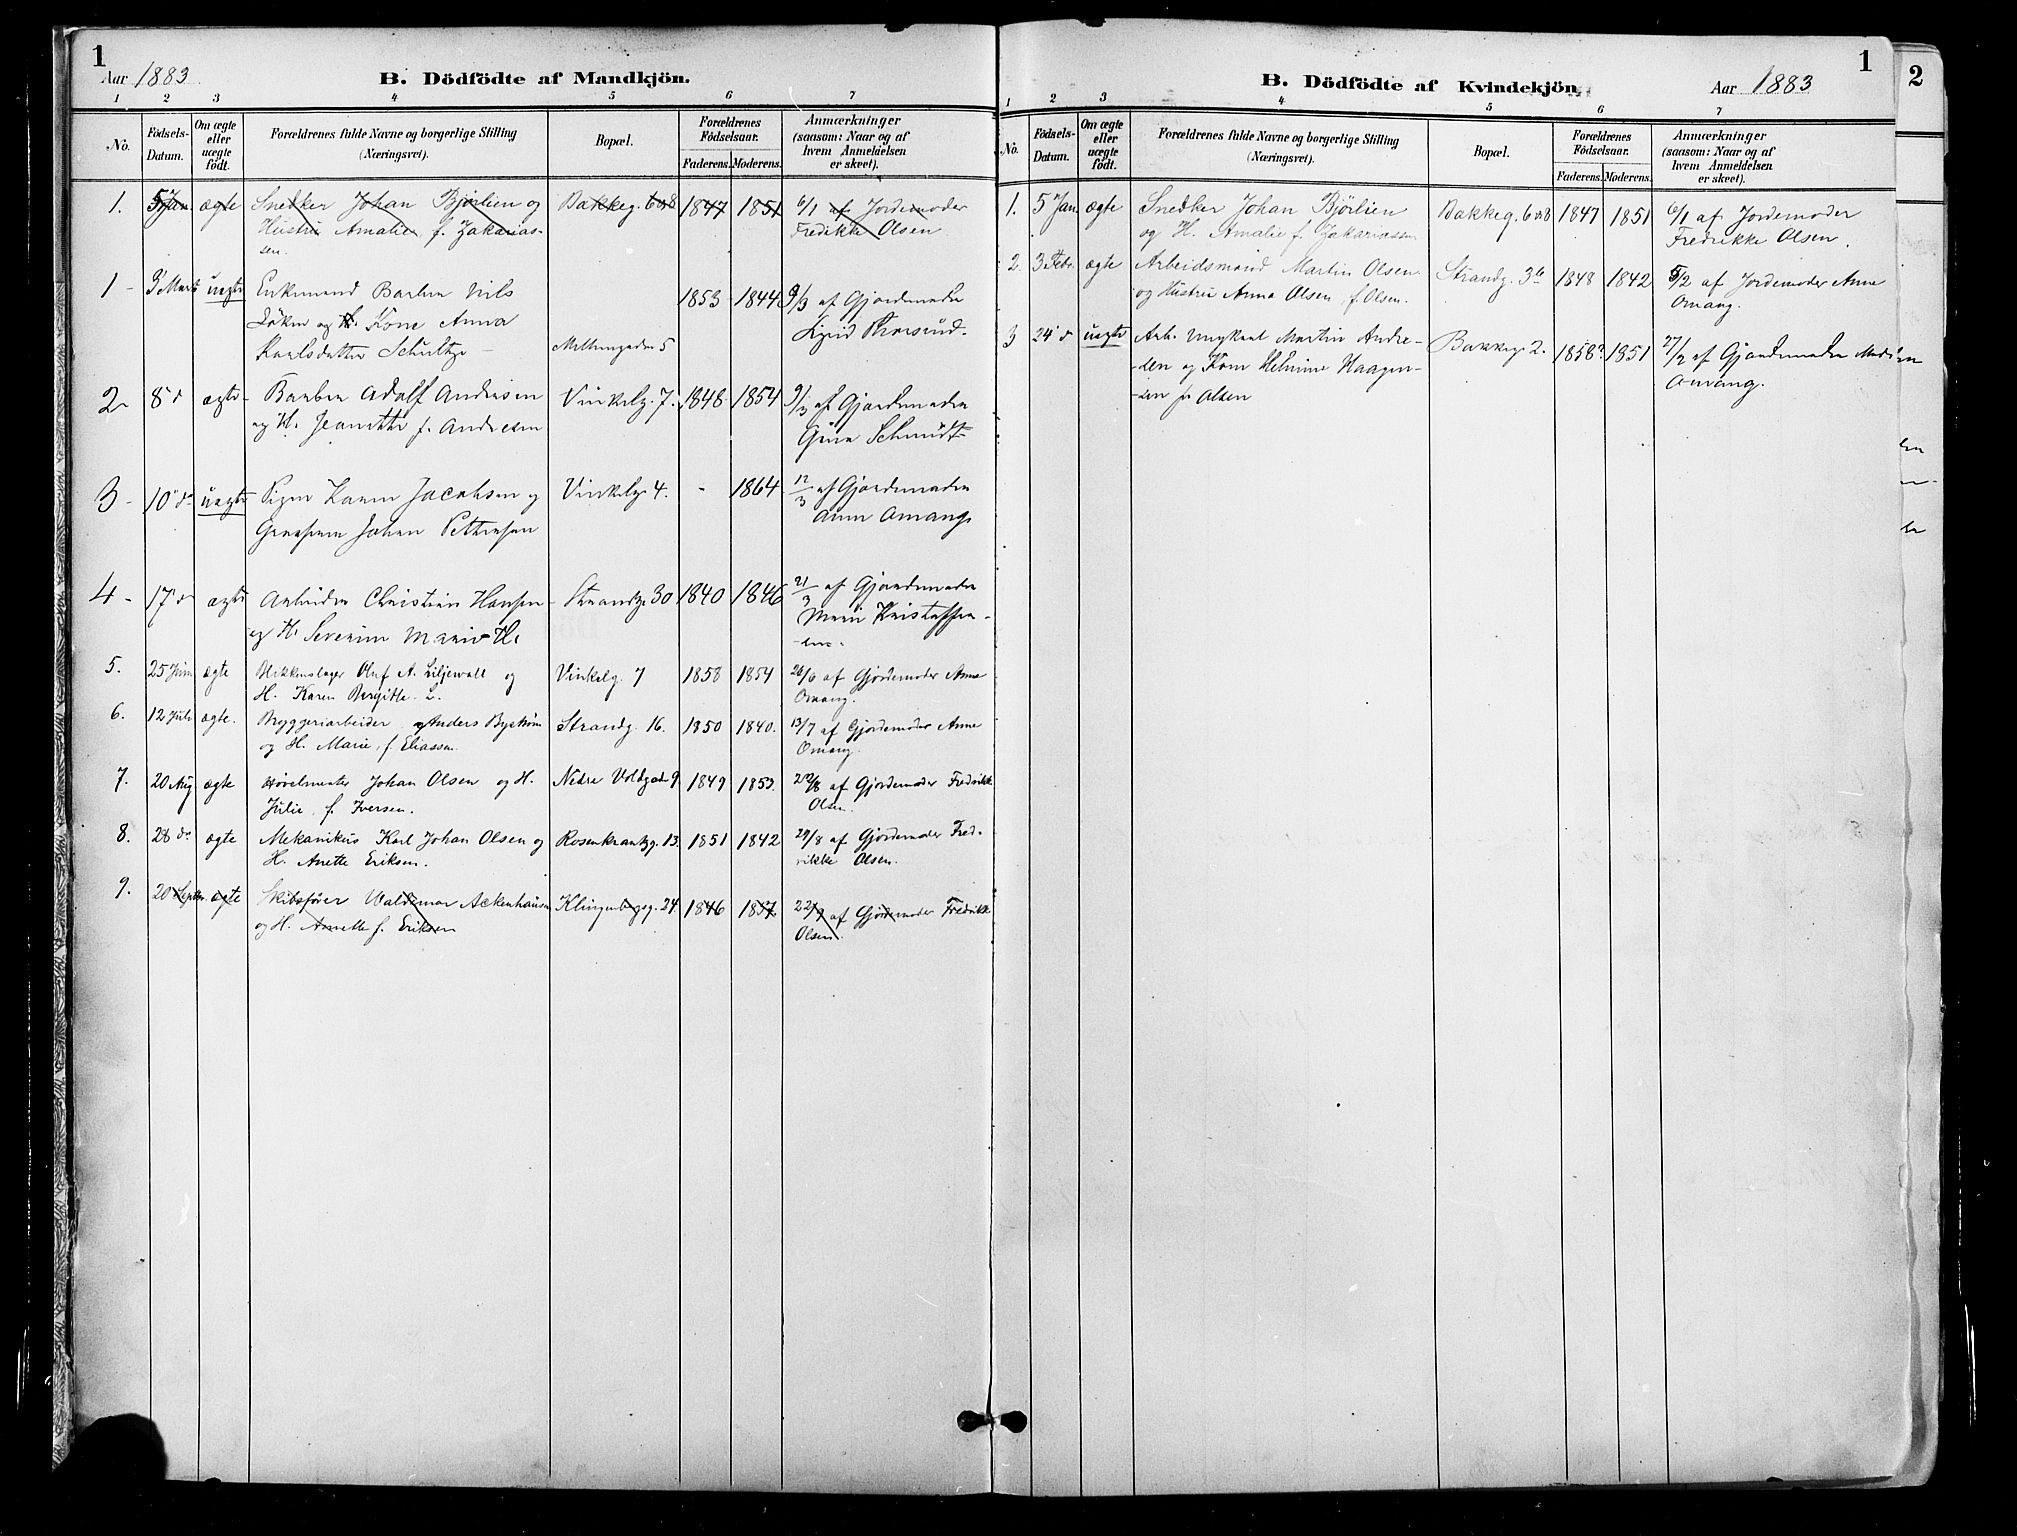 1
Aar 1883
B. Dödfödte af Mandkjön.
1 2 3 4 5 6 7
No.
Födsels-
Datum.
Om ægte
eller
uægte
födt.
Forældrenes fulde Navne og borgerlige Stilling
(Næringsvei).
Bopæl.
Forældrenes
Födselsaar.
Faderens. Moderens.
Anmærkninger
(saasom: Naar og af
hvem Anmeldelsen
er skeet).
1. 5 Jan. ægte Snedker Johan Bjørlien og Bakkeg. 6 1847 1851 6/1 af Jordemoder
Hustru Amalie f. Zakarias- Fredikke Olsen.
sen.
1 - 9 Marts uægte Barber Nils 1853 - 1844 9/3 af Gjordemoder
og Kone Anna
Karlsdatter Schultze - 5
2 - 8 d ægte - Barber Adolf Andresen Vinkelg. 7. 1848 - 1854 9/3 af Gjordemoder
og H. Jeanette f. Andresen Gina Schmidt
3 - 10 d uægte Pigen Karen Jacobsen og Vinkelg 4. - 1864 12/3 af Gjordemoder
Johan Pettersen Anne Omang
4 - 17 d ægte Arbeider Christian Hansen - Strandg. 30 1840 1846 21/3 af Gjordemoder
og H. Severine Marie H. Marie Kristoffer-
sen.
5. 25 Juni ægte Blikkenslager Oluf A. Liljewall og Vinkelg. 7 1858 1854 26/6 af Gjordemoder Anne
H. Karen Birgitte L. Omang.
6. 12 Juli ægte. Bryggeriarbeider Anders Byström Strandg. 16. 1850 1840. 13/7 af Gjordemoder Anne
og H. Marie, f. Eliassen. Omang.
7. 20 Aug ægte Høvelmester Johan Olsen og H. Nedre Voldgade 9. 1849 1853. 22/8 af Gjordemoder Fredrikke
Julie, f. Iversen. Olsen.
8. 28 do ægte Mekanikus Karl Johan Olsen og Rosenkrantzg. 13. 1851 1842 29/8 af Gjordemoder Fred-
H. Anette Eriksen. rikke Olsen.
9. 20 Septbr. ægte Skibsfører Waldemar Ackenhausen Klingenbergg. 24. 1846 1857 22/9 af Gjordemoder Fredrikke
og H. Anette f. Eriksen Olsen.
1
B. Dödfödte af Kvindekjön.
Aar 1883
1 2 3 4 5 6 7
No.
Födsels-
Datum.
Om ægte
eller
uægte
födt.
Forældrenes fulde Navne og borgerlige Stilling
(Næringsvei).
Bopæl.
Forældrenes
Födselsaar.
Faderens. Moderens.
Anmærkninger
(saasom: Naar og af
hvem Anmeldelsen
er skeet).
1. 5 Jan. ægte Snedker Johan Bjørlien Bakkeg. 6 1847 1851 6/1 af Jordemoder
og H. Amalie f. Zakariassen Fredrikke Olsen.
2 3 Febr. ægte Arbeidsmand Martin Olsen Strandg. 3b 1848 1842 5/2 af Jordemoder Anne
og Hustru Anna Olsen, f. Olsen. Omang.
3 24 d uægte Arb. Ungkarl Martin Andre- Bakkeg. 2. 1858? 1851 27/2 af Gjordemoder
og Kone Helmine Haagen- Omang.
sen f. Olsen
2